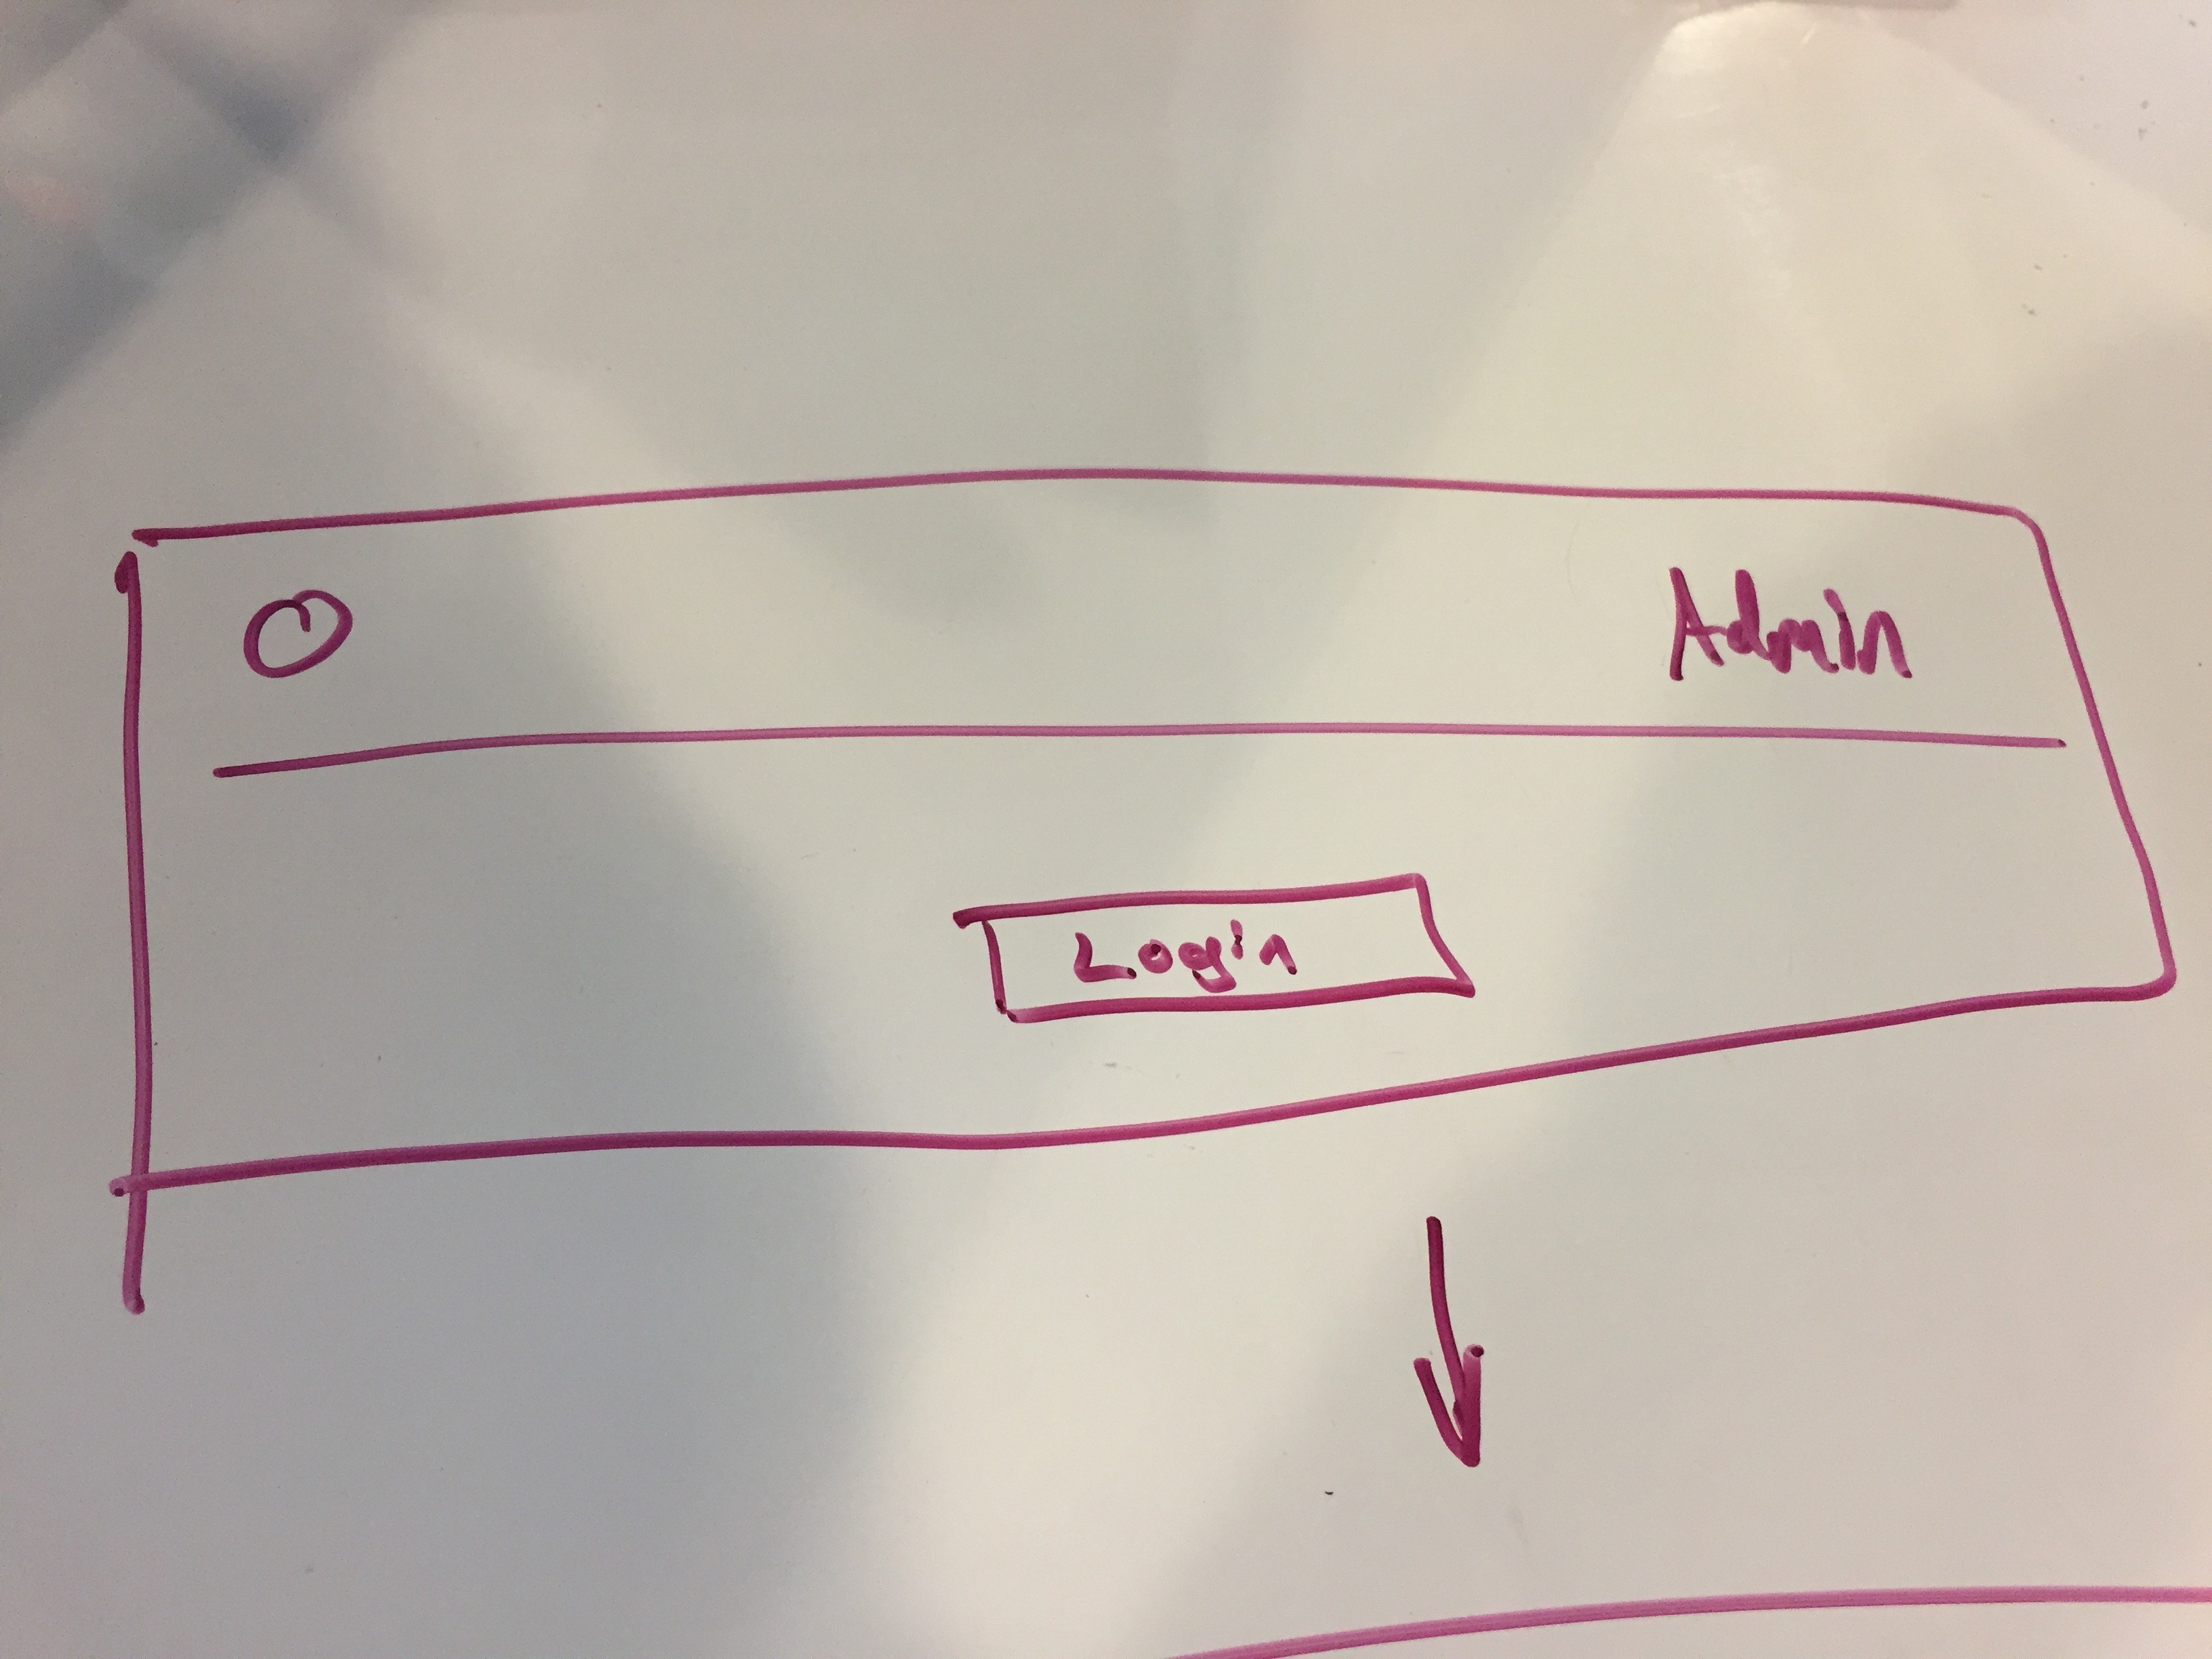 Admin
Login